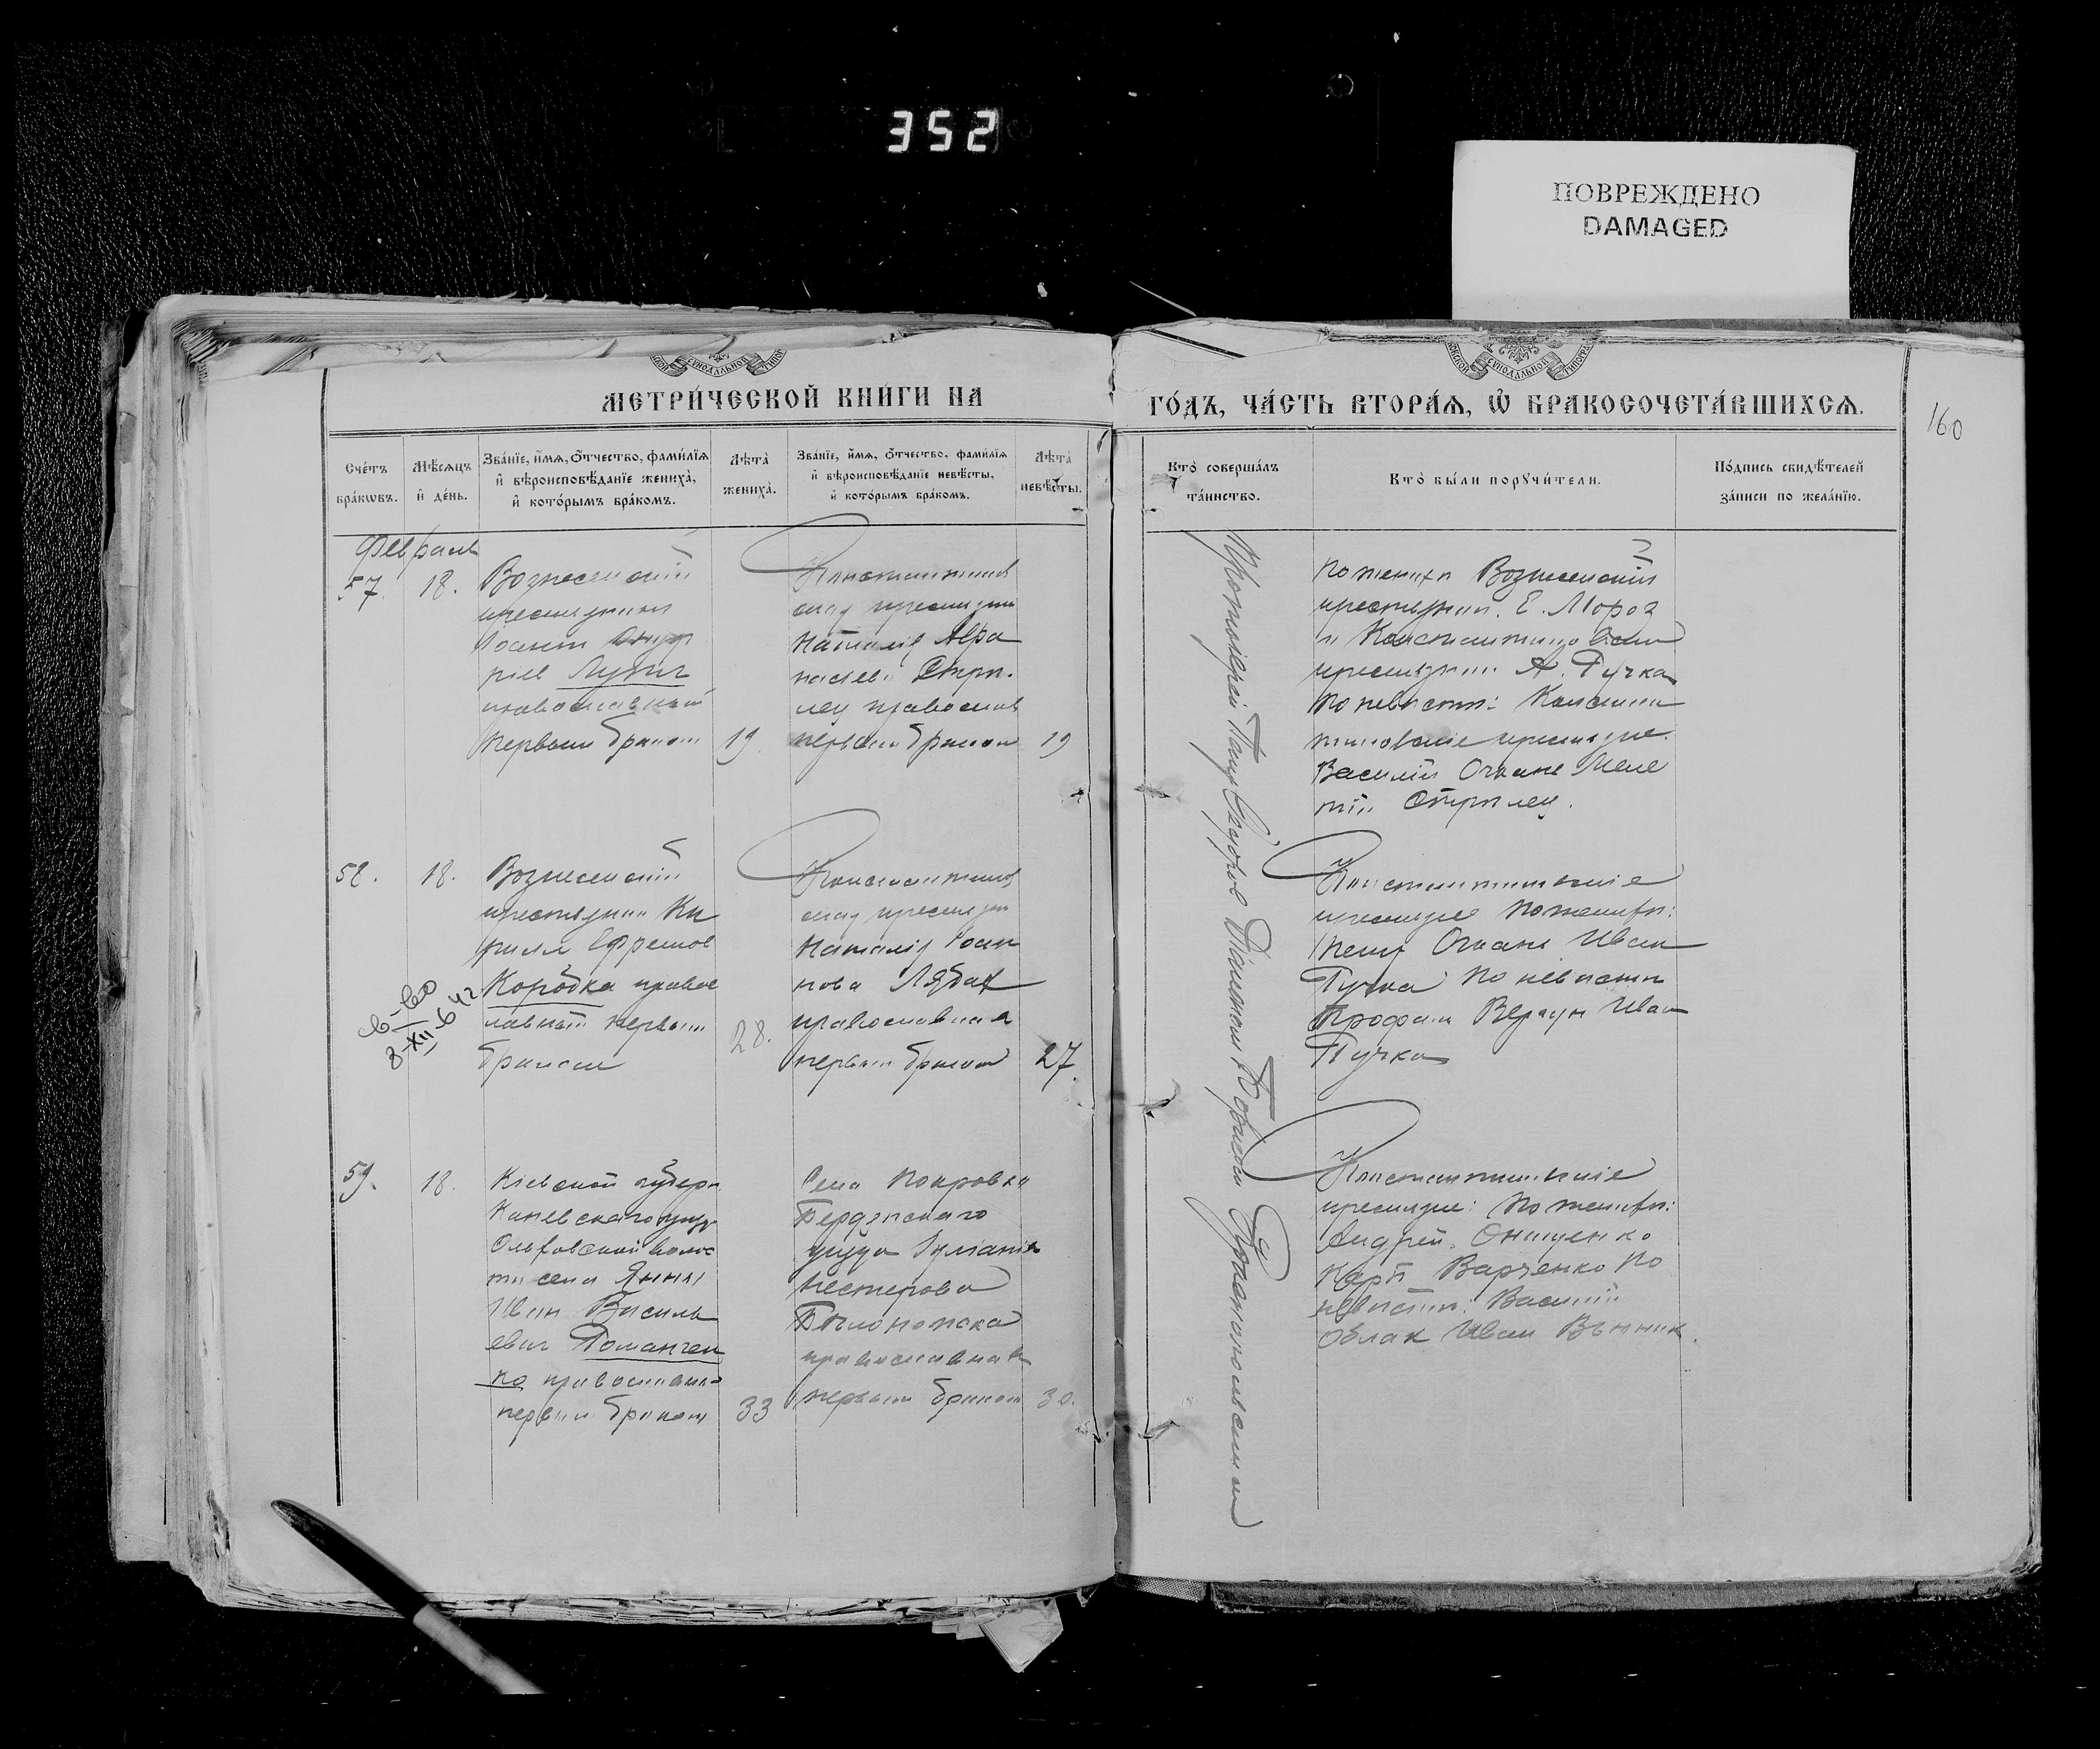 352
ПОВРЕЖДЕНО
DAMAGED
СѴНОДАЛЬНОЙ
СѴНОДАЛЬНОЙ
МЕТРИ́ЧЕСКОЙ КНИ́ГИ НА
ГО́ДЪ, ЧА́СТЬ ВТОРА́Я, Ѡ҆ БРАКОСОЧЕТА́ВШИХСѦ.
160
Сче́тъ
бра́кѡвъ.
Мѣ́сяцъ
и҆ де́нь.
Зва́нїе, и҆́мя, о҆́тчество, фами́лїя
и҆ вѣроисповѣ́данїе жениха̀,
и҆ кото́рымъ бра́комъ.
Лѣта̀
жениха̀.
Зва́нїе, и҆́мя, о҆́тчество, фами́лїя
и҆ вѣроисповѣ́данїе невѣ́сты,
и҆ кото́рымъ бра́комъ.
Лѣта̀
невѣ́сты.
Кто̀ соверша́лъ
та́инство.
Кто̀ бы́ли порꙋчи́тели.
По́дпись свидѣ́телей
за́писи по жела́нїю.
Февраль
57.
18.
Вознесенский
крестьянин
Іоанн
Лупич
православный
первым браком
19.
Константинов
ская крестьян
Наталия Афа
насьев. Стрп.
лец православ
первым браком
19
По жениху Вознесенский
крестьянин. Е. Мороз
и Константиновский
крестьянин А. Гучка
По невесте: Констан
тиновские крестьяне
Василий Меле
тій Стрплец.
58.
18.
Вознесенский
крестьянин Ки
рилл Ефремов
Коробка правос
лавный первым
браком
28.
Константинов
ская крестьян
Наталия Іоан
нова Лябах
православная
первым браком
27.
св-во
8-XII-642
Константиновские
крестьяне По жениху:
Иван
Гучка По невесте
Трофим Иван
Гучка
59.
18.
Кіевской губерн
Каневского уезд
волос
ти села Яхны
Иван Василь
евич Романчен
ко православн
первым браком
33
Села Покровка
Бердянского
уезда Іулиания
Нестерова
православная
первым браком
30.
Константиновские
крестьяне: По жениху:
Андрей Онищенко
Карп Варченко По
невесте: Василий
Облак Иван Вінник.
Протоіерей Павел с Діаконом Псаломщиком